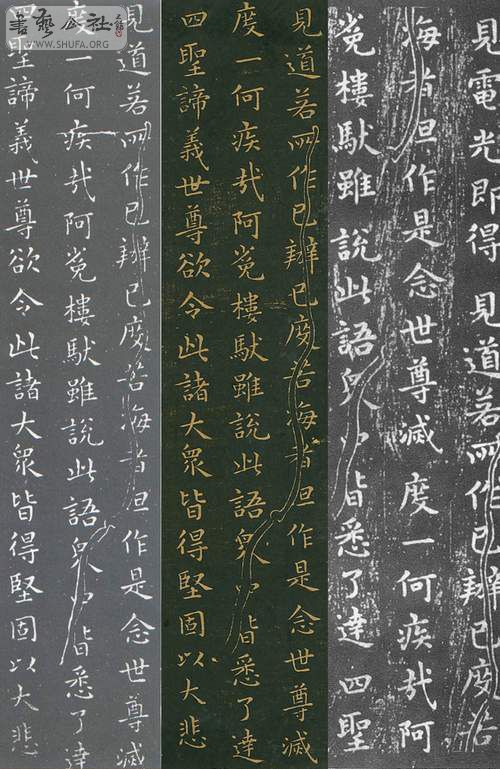 見電光即得見道若所作已辦已度苦
海者但作是念世尊滅度一何疾哉阿
㝹樓馱雖說此語眾中皆悉了達四聖
見道若所作已辦已度苦海者但作是念世尊滅
度一何疾哉阿㝹樓馱雖說此語眾中皆悉了達
四聖諦義世尊欲令此諸大眾皆得堅固以大悲
見道若所作已辦已度苦海者但作是念世尊滅
度一何疾哉阿㝹樓馱雖說此語眾中皆悉了達
四聖諦義世尊欲令此諸大眾皆得堅固以大悲
書藝公社
WWW.SHUFA.ORG